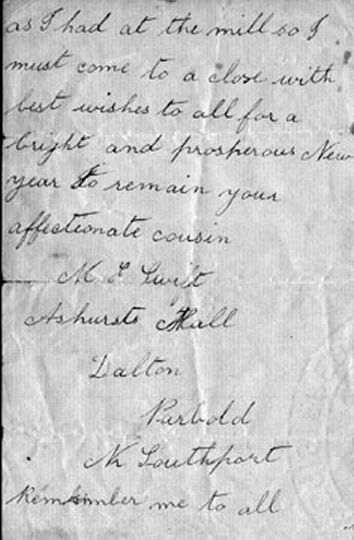 as I had at the mill so I
must come to a close with
best wishes to all for a
bright and prosperous New
year to remain your
affectionate cousin
M E Swift
Ashursts Hall
Dalton
Parbold
N Southport
Remember me to all